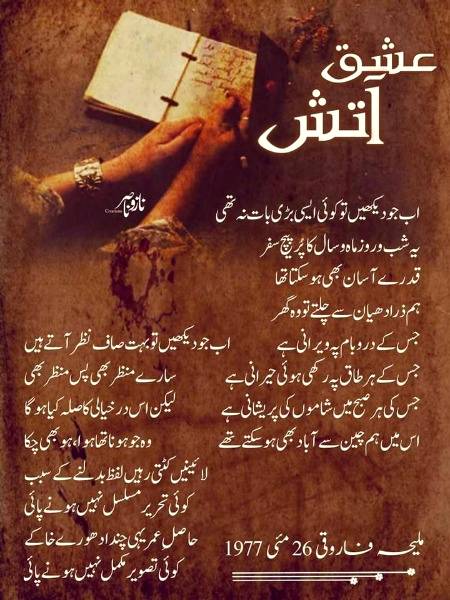 عشق
آتش
نازونامہ
Creations
اب جو دیکھیں تو کوئی ایسی بڑی بات نہ تھی
یہ شب و روز و ماہ و سال کا پُر پیچ سفر
قدرے آسان بھی ہو سکتا تھا
ہم ذرا دھیان سے چلتے تو وہ گھر
جس کے در و بام پہ ویرانی ہے
جس کے ہر طاق پہ رکھی ہوئی حیرانی ہے
جس کی ہر صبح میں شاموں کی پریشانی ہے
اس میں ہم چین سے آباد بھی ہو سکتے تھے
اب جو دیکھیں تو بہت صاف نظر آتے ہیں
سارے منظر بھی پس منظر بھی
لیکن اس در خیالی کا صلہ کیا ہو گا
وہ جو ہونا تھا ہوا، ہو بھی چکا
لائینیں کٹتی رہیں لفظ بدلنے کے سبب
کوئی تحریر مسلسل نہیں ہونے پائی
حاصل عمر یہی چند ادھورے خاکے
کوئی تصویر مکمل نہیں ہونے پائی
ملیحہ فاروقی 26 مئی 1977